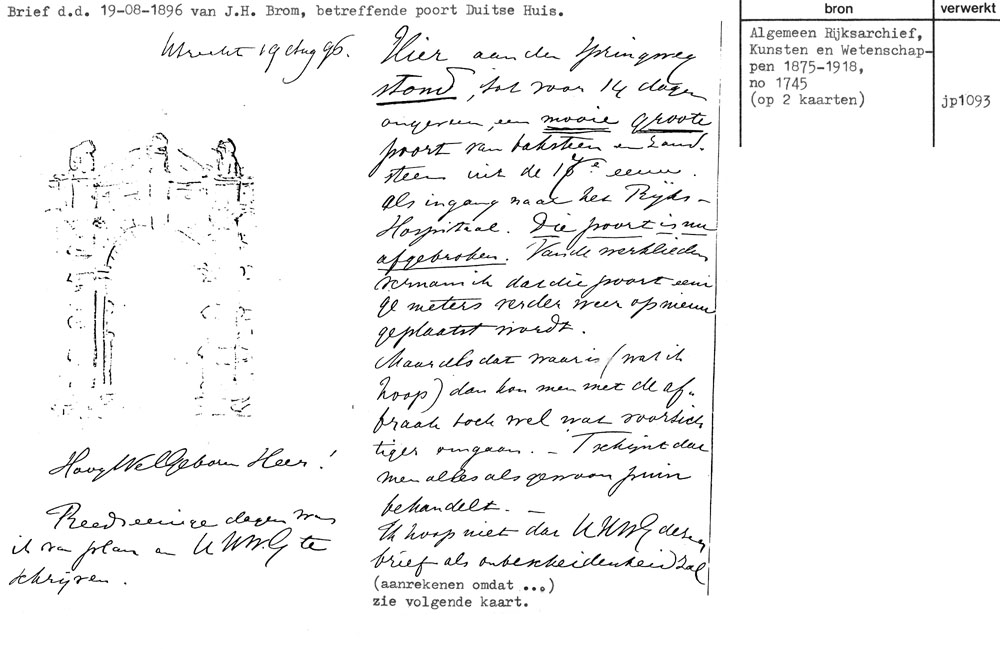 Brief d.d. 19-08-1896 van J.H. Brom, betreffende poort Duitse Huis.
Utrecht 19 Aug 96.
HoogWelGeboren Heer!
Reeds eenige dagen was
ik van plan aan UHWG te
schrijven.
Hier aan den Springweg
stond, tot voor 14 dagen
ongeveer, een mooie groote
poort van baksteen en zand-
steen uit de 17e eeuw.
als ingang naar het Rijks-
Hospitaal. Die poort is nu
afgebroken. Van de werklieden
vernam ik dat die poort eeni
ge meters verder weer op nieuw
geplaatst wordt.
Maar als dat waar is (wat ik
hoop) dan kon men met de af-
braak toch wel wat voorzich
tiger omgaan. - T schijnt dat
men alles als gewoon puin
behandelt. -
Ik hoop niet dat UHWG dezen
brief als onbescheidenheid zal
(aanrekenen omdat ...)
zie volgende kaart.
bron
Algemeen Rijksarchief,
Kunsten en Wetenschap-
pen 1875-1918,
no 1745
(op 2 kaarten)
verwerkt
jp1093